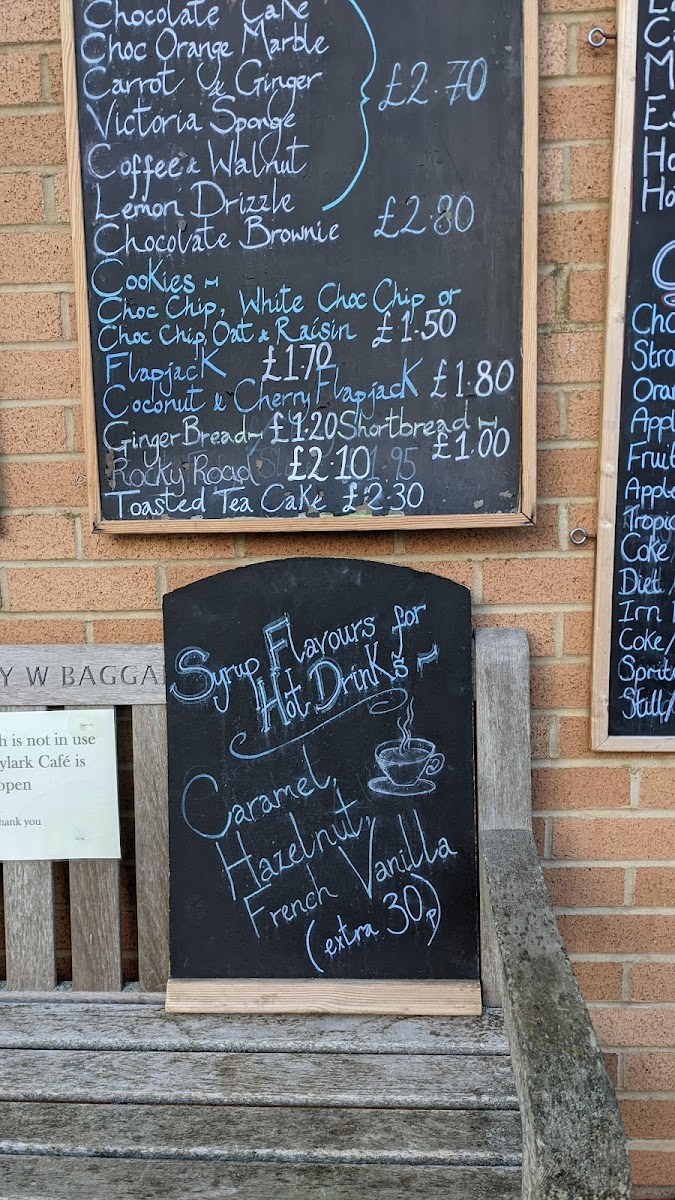 Chocolate Cake
Choc Orange Marble
Carrot & Ginger
£2.70
Victoria Sponge
Coffee & Walnut
Lemon Drizzle
Chocolate Brownie £2.80
Cookies ~
Choc Chip, White Choc Chip or
Choc Chip, Oat & Raisin £1.50
Flapjack £1.70
Coconut & Cherry Flapjack £1.80
Ginger Bread ~ £1.20 Shortbread ~
£1.00
Rocky Road £2.10
Toasted Tea Cake £2.30
Syrup Flavours for
Hot Drinks ~
Caramel,
Hazelnut,
French Vanilla
(extra 30p)
Y W BAGGA
h is not in use
ylark Café is
open
hank you
Ca
M
Es
Ho
Ho
C
Cho
Stra
Oran
Appl
Fruit
Apple
Tropic
Coke/
Diet /
Irn
Coke/
Sprite
Still/